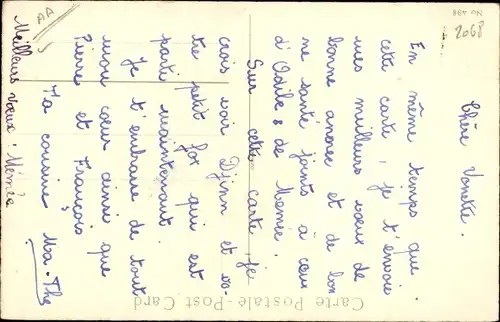 Chère Vonette.
En même temps que
cette carte, je t'envoie
mes meilleurs vœux de
bonne année et de bon
ne santé joints à ceux
d'Odile & de Mamie.
Sur cette carte, je
crois voir Djinn et vo-
tre petit for qui est
parti maintenant.
Je t'embrasse de tout
mon cœur ainsi que
Pierre et François
Ta cousine Ma-Thé
Meilleurs vœux : Mémée
AA
No 498
2068
Carte Postale - Post Card